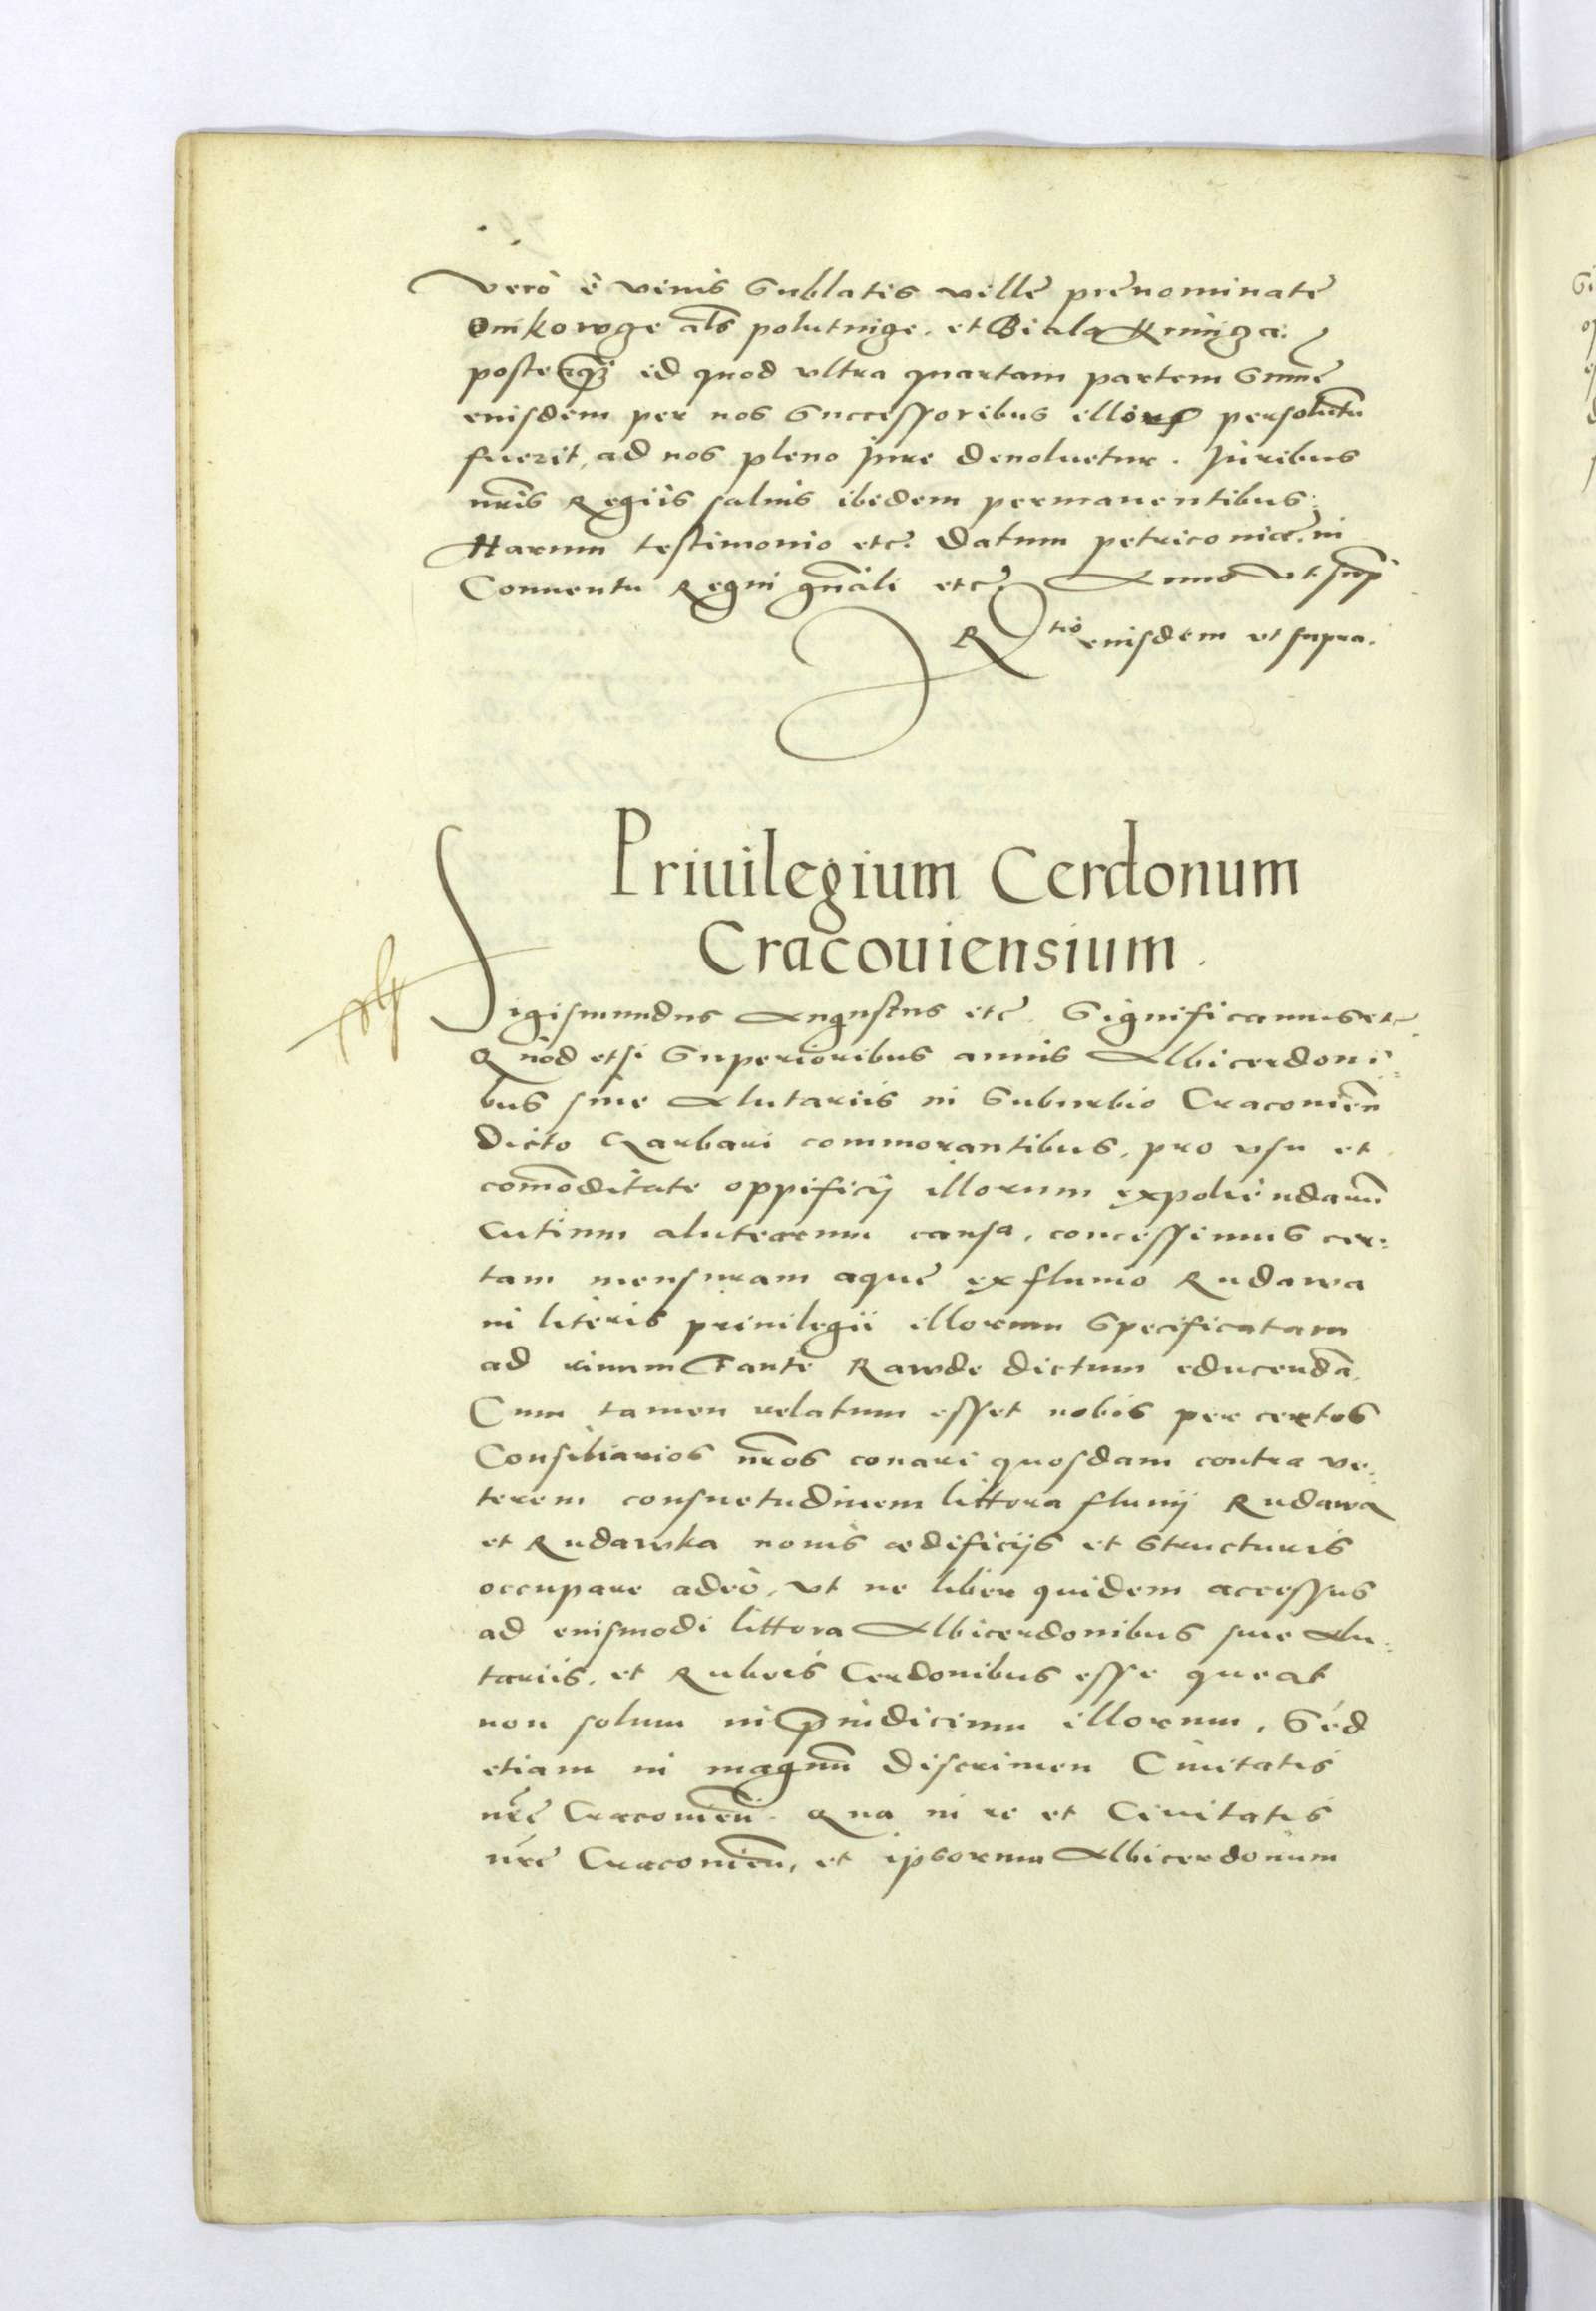 vero è viuis sublatis ville prenominate
als polutnige. et Biala
posteaq̃ id quod vltra quartam partem sum̃e
euisdem per nos successoribus illorꝝ persolutũ
fuerit, ad nos pleno jure deuoluetur. Juribus
nr̃is Regiis saluis ibidem permanentibus.
Harum testimonio etc̃. datum petricouiæ. in
Conuentu Regni gñali etc̃. Anno vt sup̃
R tio euisdem vt supra.
Priuilegium Cerdonum
Cracouiensium.
Sigismundus Augustus etc̃. Significamus etc̃.
Quod etsi superioribus annis Albicerdoni=
bus siue Alutariis in suburbio Cracouien̄
dicto Garbari commorantibus, pro vsu et
com̄oditate oppificij illorum expoliendarũ
cutium alutarum causa, concessimus cer=
tam mensuram aque ex fluuio Rudawa
in literis priuilegii illorum specificatam
ad riuum Rawde dictum educendã.
Cum tamen relatum esset nobis per certos
Consiliarios nr̃os conari quosdam contra ve=
terem consuetudinem littora fluuij Rudawa
et Rudawka nouis ædificijs et structuris
occupare adeò, vt ne liber quidem accessus
ad euismodi littora Albicerdonibus siue Alu=
tariis, et Rubeis Cerdonibus esse queat
non solum in p̱iudicium illorum, sed
etiam in magnũ discrimen Ciuitatis
nr̃e Cracouien̄. Qua in re et Ciuitatis
nr̃e Cracouien̄, et ipsorum Albicerdonum